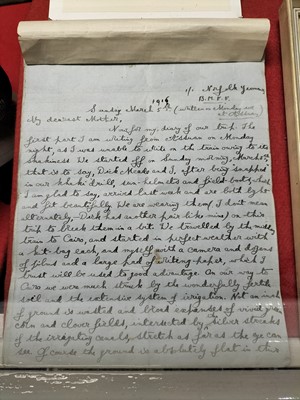 1/1 Norfolk Yeom.
B.M.E.F.
1916
Sunday March 5th (written Monday
at Assuan)
My dearest Mother,
Now for my diary of our trip. The
first part I am writing from Assuan on Monday
night, as I was unable to write on the train owing to its
shakiness. We started off on Sunday morning, March 5th
that is to say, Dick Meade and I, after being snapped
in our khaki drill, sun-helmets and field boots, which
I am glad to say, arrived last week and are both light
and fit beautifully. We are wearing them (I don't mean
alternately, Dick has another pair like mine) on this
trip to break them in a bit. We travelled by the
train to Cairo, and started in perfect weather with
a kit-bag each, and myself with a camera and dozens
of films and a large pad of writing-paper, which I
trust will be used to good advantage. On our way to
Cairo we were much struck by the wonderfully fertile
soil and the extensive system of irrigation. Not an inch
of ground is wasted and broad expanses of vivid green
corn and clover fields, intersected by silver streaks
of the irrigating canals, stretch as far as the eye can
see. Of course the ground is absolutely flat in this